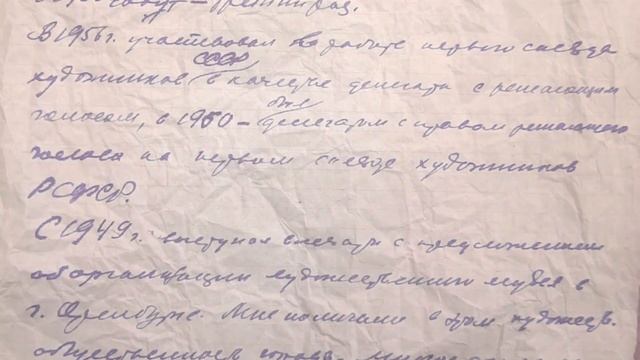 В 1956 г. участвовал в работе первого съезда
художников СССР в качестве делегата с решающим
голосом, в 1960 – делегатом с правом решающего
голоса на первом съезде художников
РСФСР.
С 1949 г. выступал в печати с предложением
об организации художественного музея в
г. Оренбурге. Мне помогали в этом художеств.
общественность